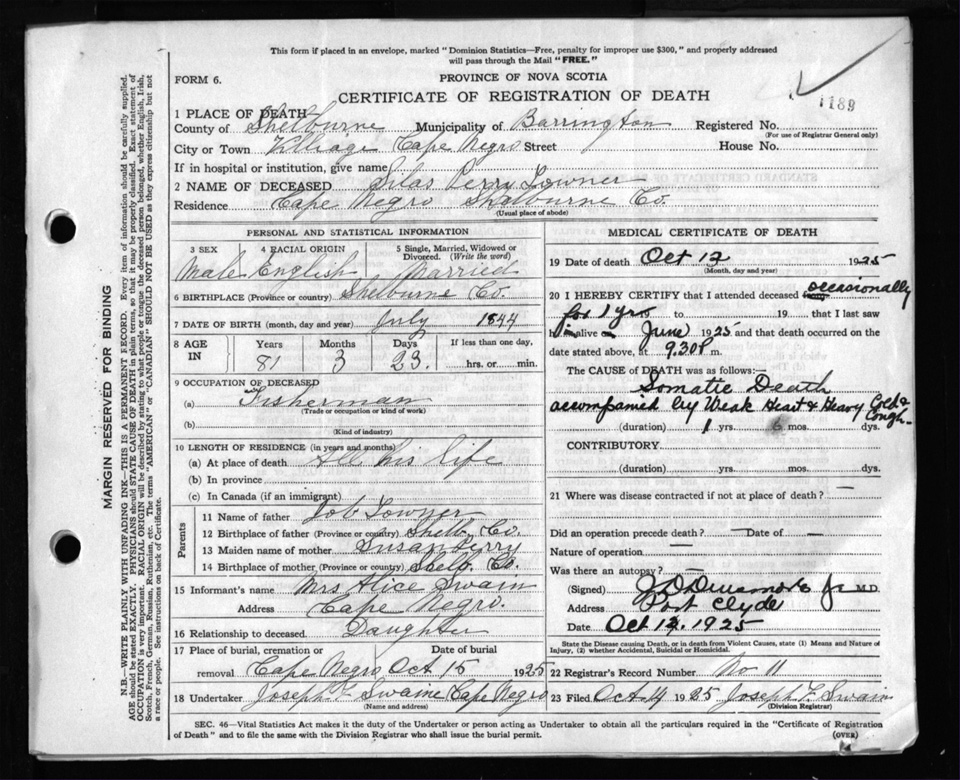 This form if placed in an envelope, marked "Dominion Statistics—Free, penalty for improper use $300," and properly addressed
will pass through the Mail "FREE."
FORM 6.
PROVINCE OF NOVA SCOTIA
CERTIFICATE OF REGISTRATION OF DEATH
1189
1 PLACE OF DEATH
County of Shelburne Municipality of Barrington Registered No.
(For use of Registrar General only)
City or Town Village Cape Negro Street House No.
If in hospital or institution, give name
2 NAME OF DECEASED Silas Perry Sowner
Residence Cape Negro Shelburne Co.
(Usual place of abode)
PERSONAL AND STATISTICAL INFORMATION
3 SEX 4 RACIAL ORIGIN 5 Single, Married, Widowed or
Divorced. (Write the word)
Male English Married
6 BIRTHPLACE (Province or country) Shelburne Co.
7 DATE OF BIRTH (month, day and year) July 1844
8 AGE IN Years Months Days If less than one day,
81 3 23. hrs. or min.
9 OCCUPATION OF DECEASED
(a) Fisherman
(Trade or occupation or kind of work)
(b)
(Kind of industry)
10 LENGTH OF RESIDENCE (in years and months)
(a) At place of death All his life
(b) In province
(c) In Canada (if an immigrant)
Parents
11 Name of father Job Sowner
12 Birthplace of father (Province or country) Shelb. Co.
13 Maiden name of mother Susan Perry
14 Birthplace of mother (Province or country) Shelb. Co.
15 Informant's name Mrs Alice Swain
Address Cape Negro.
16 Relationship to deceased Daughter
17 Place of burial, cremation or Date of burial
removal Cape Negro Oct 15 1925
18 Undertaker Joseph F Swaine Cape Negro
(Name and address)
MEDICAL CERTIFICATE OF DEATH
19 Date of death Oct 12 1925
(Month, day and year)
20 I HEREBY CERTIFY that I attended deceased from occasionally
for 1 yrs 19 to 19 that I last saw
him alive on June 1925 and that death occurred on the
date stated above, at 9.30P m.
The CAUSE of DEATH was as follows:—
Somatic Death
accompanied by Weak Heart & Heavy Cold & Cough-
(duration) 1 yrs. 6 mos. dys.
CONTRIBUTORY
(duration) yrs. mos. dys.
21 Where was disease contracted if not at place of death? —
Did an operation precede death? — Date of —
Nature of operation —
Was there an autopsy? —
(Signed) Jr M.D.
Address Port Clyde
Date Oct 1925
State the Disease causing Death, or in Death from Violent Causes, state (1) Means and Nature of
Injury, (2) whether Accidental, Suicidal or Homicidal.
22 Registrar's Record Number No 11
23 Filed Oct 14 1925 Joseph F. Swain
(Division Registrar)
SEC. 46—Vital Statistics Act makes it the duty of the Undertaker or person acting as Undertaker to obtain all the particulars required in the "Certificate of Registration
of Death" and to file the same with the Division Registrar who shall issue the burial permit.
(OVER)
MARGIN RESERVED FOR BINDING
N.B.—WRITE PLAINLY WITH UNFADING INK—THIS IS A PERMANENT RECORD. Every item of information should be carefully supplied.
AGE should be stated EXACTLY. PHYSICIANS should STATE CAUSE OF DEATH in plain terms, so that it may be properly classified. Exact statement of
OCCUPATION is very important. RACIAL ORIGIN will be described by stating to what people or tongue the deceased person belonged, whether English, Irish,
Scotch, French, German, Russian, Ruthenian, etc. The terms "AMERICAN" or "CANADIAN" SHOULD NOT BE USED as they express citizenship but not
a race or people. See instructions on back of Certificate.